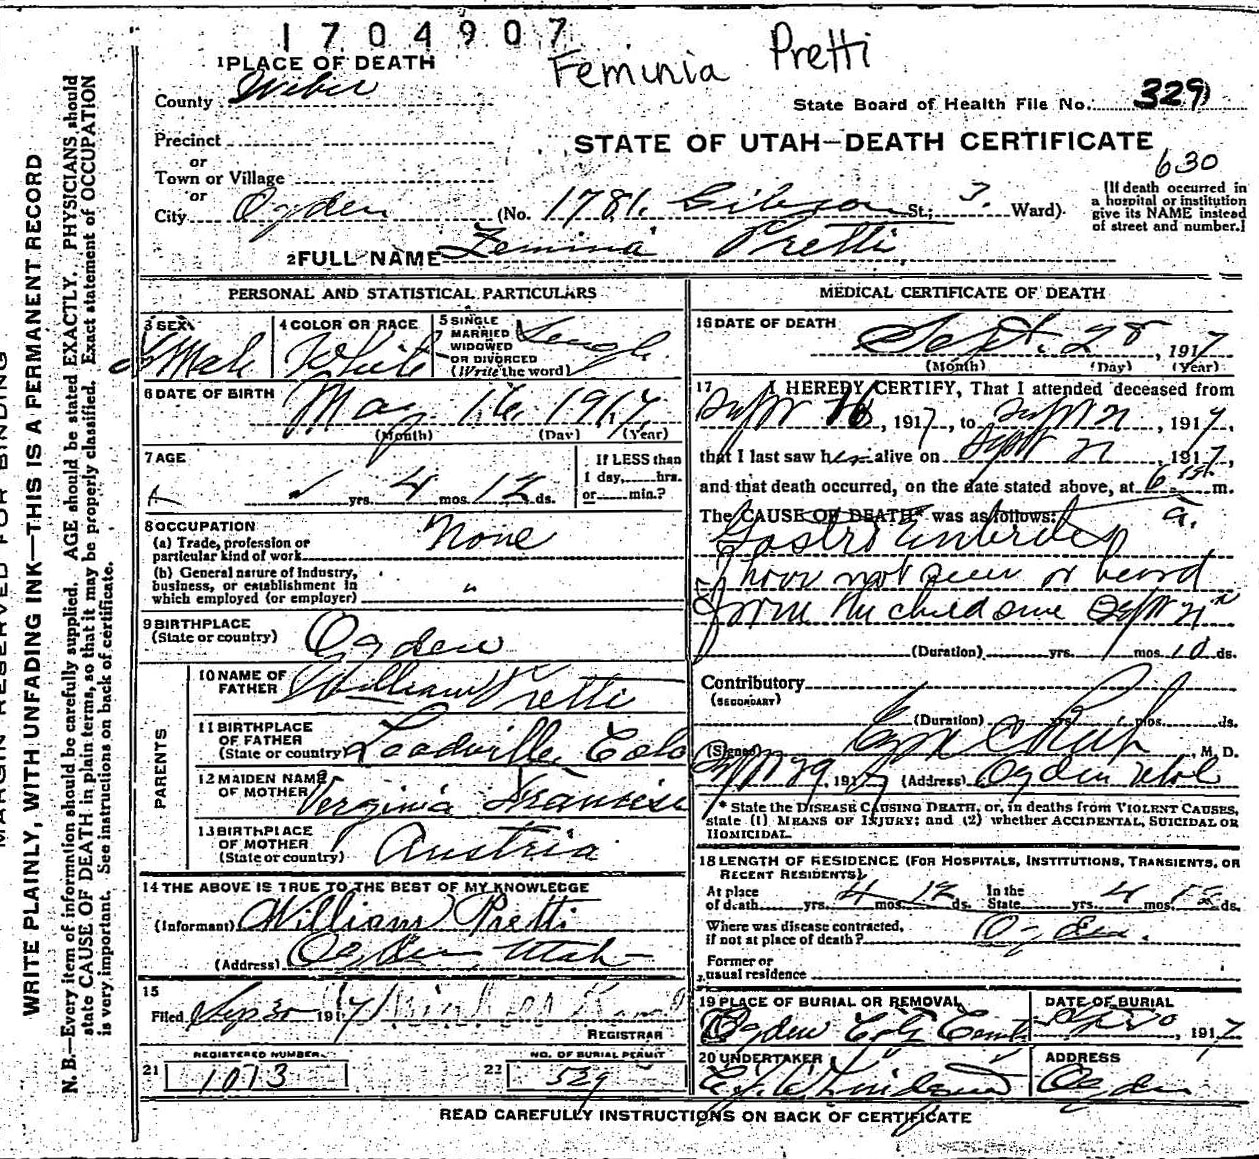 1704907
Feminia Pretti
1 PLACE OF DEATH
County Weber
State Board of Health File No. 329
Precinct
STATE OF UTAH—DEATH CERTIFICATE
or
Town or Village
630
or
City Ogden (No. 1781 Gibson St.; 3. Ward)
[If death occurred in a hospital or institution give its NAME instead of street and number.]
2 FULL NAME Femina Pretti
MARGIN RESERVED FOR BINDING
WRITE PLAINLY, WITH UNFADING INK—THIS IS A PERMANENT RECORD
N. B.—Every item of information should be carefully supplied. AGE should be stated EXACTLY. PHYSICIANS should
state CAUSE OF DEATH in plain terms, so that it may be properly classified. Exact statement of OCCUPATION
is very important. See instructions on back of certificate.
PERSONAL AND STATISTICAL PARTICULARS
3 SEX
4 COLOR OR RACE White
5 SINGLE
MARRIED
WIDOWED
OR DIVORCED
(Write the word)
6 DATE OF BIRTH May 16, 1917
(Month) (Day) (Year)
7 AGE
yrs. 4 mos. 12 ds.
If LESS than
1 day, hrs.
or min.?
8 OCCUPATION
(a) Trade, profession or
particular kind of work None
(b) General nature of Industry,
business, or establishment in
which employed (or employer) "
9 BIRTHPLACE
(State or country) Ogden
PARENTS
10 NAME OF
FATHER William Pretti
11 BIRTHPLACE
OF FATHER
(State or country) Leadville Colo
12 MAIDEN NAME
OF MOTHER Verginia
13 BIRTHPLACE
OF MOTHER
(State or country) Austria
14 THE ABOVE IS TRUE TO THE BEST OF MY KNOWLEDGE
(Informant) William Pretti
(Address) Ogden, Utah
15
Filed Sep 30 1917
REGISTRAR
REGISTERED NUMBER
21 1073
NO. OF BURIAL PERMIT
22 529
MEDICAL CERTIFICATE OF DEATH
16 DATE OF DEATH
Sept. 28, 1917
(Month) (Day) (Year)
17 I HEREBY CERTIFY, That I attended deceased from
, 1917, to Sept 21, 1917,
that I last saw her alive on Sept 21, 1917,
and that death occurred, on the date stated above, at 6 m.
The CAUSE OF DEATH* was as follows: a.
Gastro Enterites
I have not seen or heard
from the child since Sept 21st
(Duration) yrs. mos. 10 ds.
Contributory
(SECONDARY)
(Duration) yrs. mos. ds.
(Signed) M. D.
29 1917 (Address) Ogden Utah
* State the DISEASE CAUSING DEATH, or, in deaths from VIOLENT CAUSES,
state (1) MEANS OF INJURY; and (2) whether ACCIDENTAL, SUICIDAL OR
HOMICIDAL.
18 LENGTH OF RESIDENCE (FOR HOSPITALS, INSTITUTIONS, TRANSIENTS, OR
RECENT RESIDENTS).
At place
of death yrs. 4 mos. 12 ds.
In the
State yrs. 4 mos. 12 ds.
Where was disease contracted,
if not at place of death? Ogden.
Former or
usual residence
19 PLACE OF BURIAL OR REMOVAL
Ogden City
DATE OF BURIAL
, 1917
20 UNDERTAKER
ADDRESS
Ogden
READ CAREFULLY INSTRUCTIONS ON BACK OF CERTIFICATE